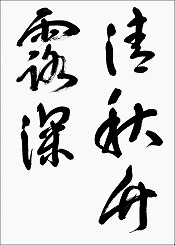 清秋竹
露深